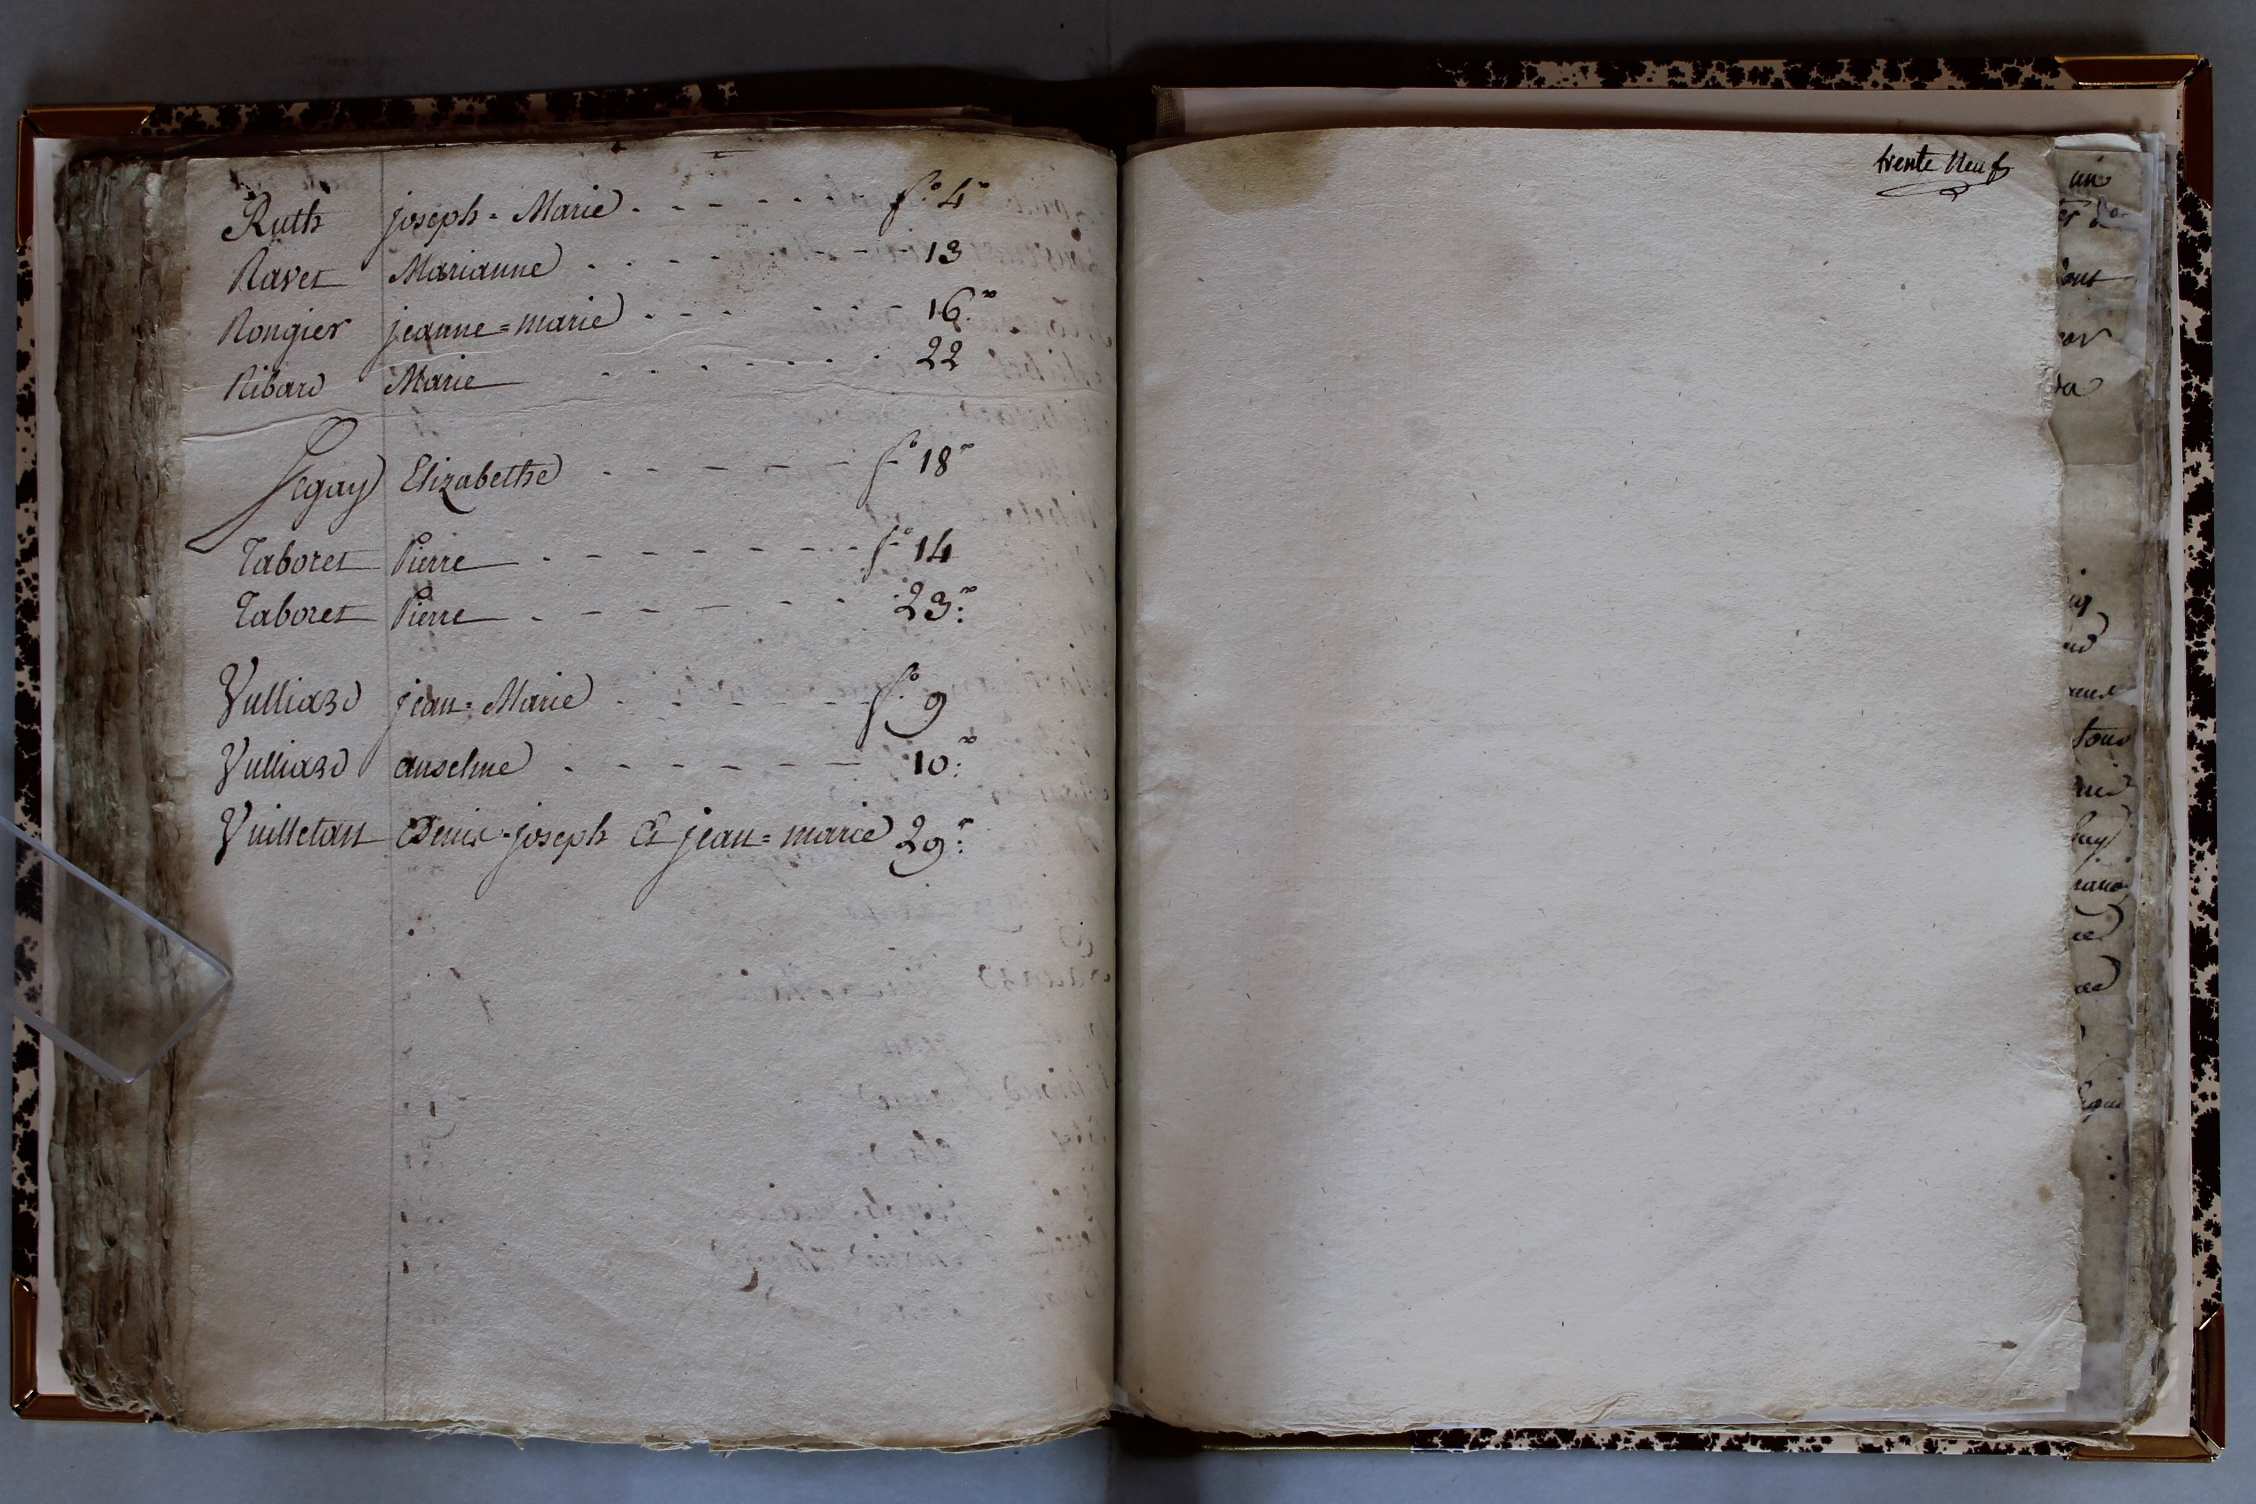 Ruth joseph = Marie - - - - - - fo. 4 ro
Ravet Marianne - - - - - - 13
Rongier jeanne = marie - - - - - - 16. ro
Ribard Marie - - - - - - 22
Segay Elizabethe - - - - - - fo 18 ro
Taboret Pierre - - - - - - fo 14
Taboret Pierre - - - - - - 23. ro
Vulliard jean = Marie - - - - - - fo. 9
Vulliard anselme - - - - - - 10. ro
Vuilletan Denis joseph Et jean = marie 29. ro
trente Neuf